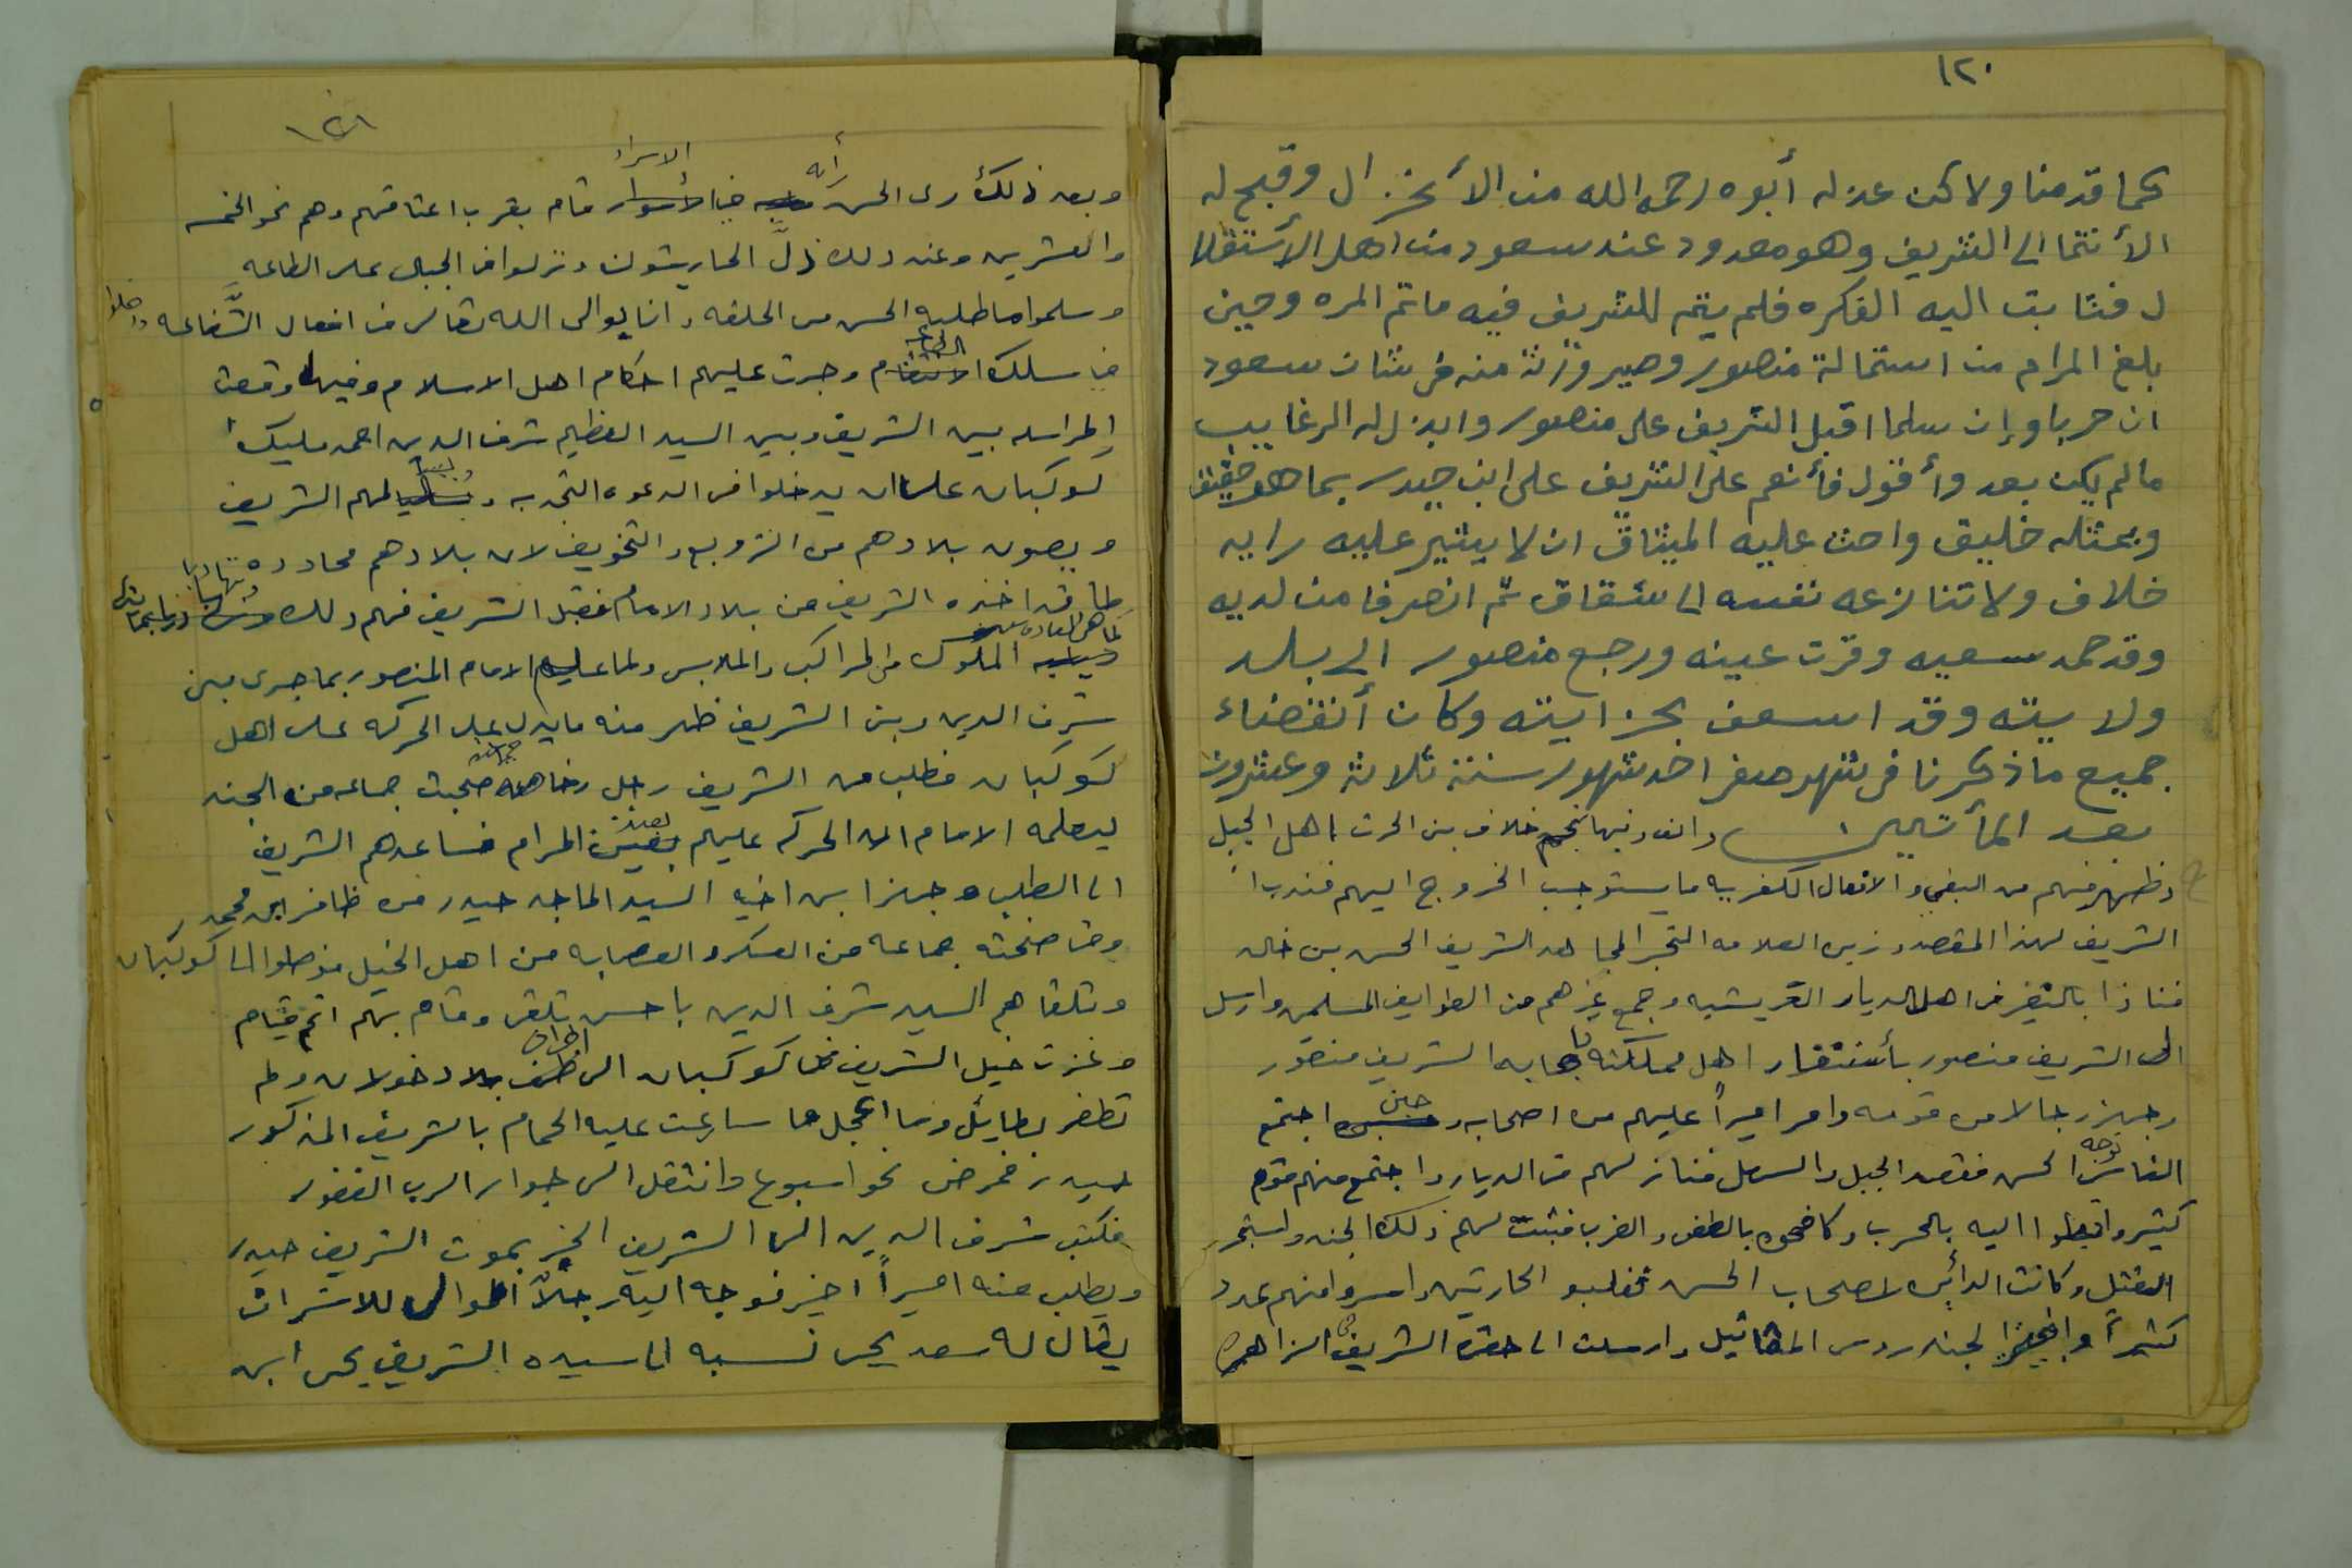 ١٢٠
كما قدمنا ولاكن عذله أبوه رحمه الله من الأنخزال وقبح له
الأنتما الى الشريف وهو معدود عند سعود من اهل الأستقلا
ل فثابت اليه الفكره فلم يتم للشريف فيه ماتم المره وحين
بلغ المرام من استمالة منصور وصير وزنه منه فى شان سعود
ان حربا وإن سلما اقبل الشريف على منصور وابذل له الرغايب
مالم يكن بعد وأقول فأنعم على الشريف على ابن حيدر بما هو حقيق
وبمثله خليق واحث عليه الميثاق ان لا يشير عليه برايه
خلاف ولا تنازعه نفسه الى شقاق ثم انصرفا من لديه
وقد حمد سعيه وقرت عينه ورجع منصور الى بلد
ولايته وقد اسعف بخزايته وكان أنقضاء
جميع ماذكرنا فى شهر صفر احد شهور سنة ثلاثة وعشرون
بعد المأتين والف وفيها نجم خلاف بن الحرث اهل الجبل
وظهر منهم من البغي والافعال الكفريه ما يستوجب الخروج اليهم فندب
الشريف لهذا المقصد وزيره العلامه التحرالمجاهد الشريف الحسن بن خالد
فنادا بالنفير فى اهل الديار القريشيه وجمع غيرهم من الطوايف المسلمين وارسل
الى الشريف منصور بأستنفار اهل مملكته فأجابه الشريف منصور
وجهز رجالا من قومه وامر اميراً عليهم من اصحابه وحين اجتمع
الناس توجه الحسن فقصد الجبل والسهل فنازلهم فى الديار واجتمع منهم قوم
كثير وانبطوا اليه بالحرب وكافحوه بالطعن والضرب فثبت لهم ذلك الجند واستحر
القتل وكانت الدائره لاصحاب الحسن فغلبو الحارثيين واسروا منهم عدد
كثيراً واحتز الجند روس المقاتيل وارسلت الى حضرة الشريف فى الزاهر
١٢١
وبعد ذلك أرى الحسن رأيه في الاسراء قام بقرب اعناقهم وهم نحو الخمسه
والعشرين وعند ذلك ذلَّ الحاريثون ونزلوا من الجبال على الطاعه
وسلموا ما طلبه الحسن من الحلقه وانابوا الى الله تعالى من افعال الشناعه ودخلوا
في سلك الطاعه وجرت عليهم احكام اهل الاسلام وفيها وقعت
المراسله بين الشريف وبين السيد العظيم شرف الدين احمد مليك
كوكبان على ان يدخلوا في الدعوه النجديه ويسالمهم الشريف
ويصون بلادهم من الترويع والتخويف لان بلادهم محادده
لما قد اخذه الشريف من بلاد الامام فقبل الشريف منهم ذلك وتهاديا
كما هى العاده بين الملوك فى المراكب والملابس ولما علم الامام المنصور بما جرى بين
شرف الدين وبن الشريف ظهر منه ما يدل على الحركه على اهل
كوكبان فطلب من الشريف رجل من خاصته صحبت جماعه من الجند
ليعلمه الامام ان الحركه عليهم بعيدة المرام فساعدهم الشريف
الى الطلب وجهز ابن اخيه السيد الماجد حيدر بن ظافر بن محمد
وفى صحبته جماعه من العسكر والعصابه من اهل الخيل فوصلوا الى كوكبان
وتلقاهم السيد شرف الدين باحسن تلقى وقام بهم اتم قيام
وغزت خيل الشريف من كوكبان الى اطراف بلاد خولان ولم
تظفر بطايل وما اعجل ما سارعت عليه الحمام بالشريف المذكور
حيدر فمرض نحو اسبوع وانتقل الى جوار الرب الغفور
فكتب شرف الدين الى الشريف الخبر بموت الشريف حيدر
ويطلب منه اميراً اخير فوجه اليه رجلاً من موالى للاشراف
يقال له سعد يحى نسبه الى سيده الشريف يحى ابن